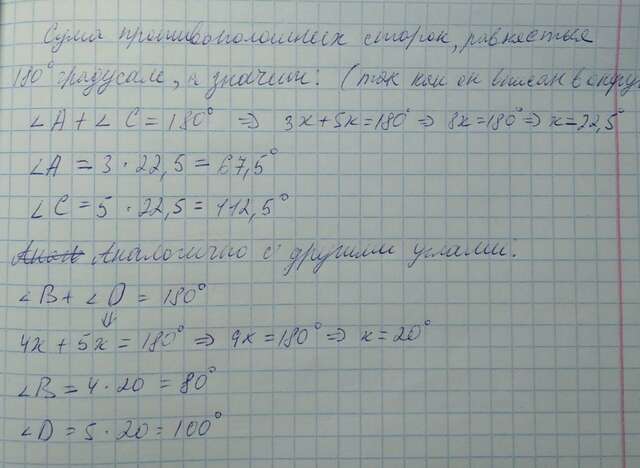 Сума противоположных сторон, равняется
180° градусам, а значит: (так как он вписан в окру
∠A + ∠C = 180° ⇒ 3x + 5x = 180° ⇒ 8x = 180° ⇒ x = 22,5°
∠A = 3 · 22,5 = 67,5°
∠C = 5 · 22,5 = 112,5°
Аналогично с другими углами:
∠B + ∠D = 180°
⇓
4x + 5x = 180° ⇒ 9x = 180° ⇒ x = 20°
∠B = 4 · 20 = 80°
∠D = 5 · 20 = 100°